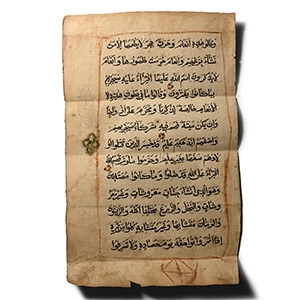 وقالوا هذه انعام وحرث حجر لا يطعمها الا من
نشاء بزعمهم وانعام حرمت ظهورها وانعام
لا يذكرون اسم الله عليها افتراء عليه سيجزيهم
بما كانوا يفترون وقالوا ما في بطون هذه
الانعام خالصة لذكورنا ومحرم على ازواجنا
وان يكن ميتة فهم فيه شركاء سيجزيهم
وصفهم انه حكيم عليم قد خسر الذين قتلوا او
لادهم سفها بغير علم وحرموا ما رزقهم الله
افتراء على الله قد ضلوا وما كانوا مهتدين
وهو الذي انشا جنات معروشات وغير معرو
شات والنخل والزرع مختلفا اكله والزيتون
والرمان متشابها وغير متشابه كلوا من ثمره
اذا اثمر واتوا حقه يوم حصاده ولا تسرفوا